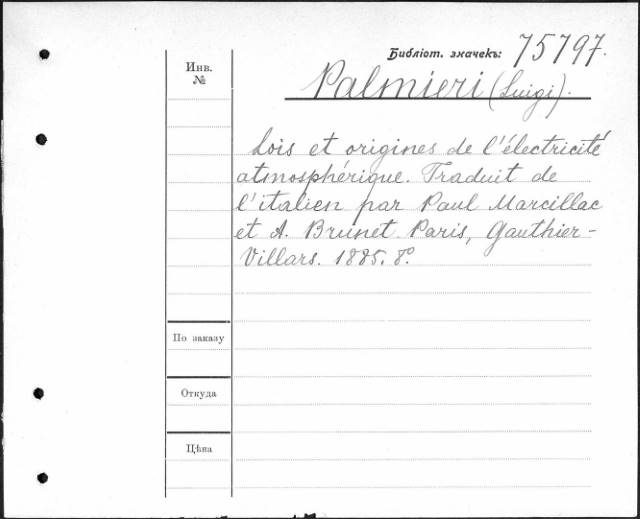 Библіот. значекъ: 75797.
Инв.
№
Palmieri (Luigi).
Lois et origines de l'électricité
atmosphérique. Traduit de
l'italien par Paul Marcillac
et A. Brunet. Paris, Gauthier-
Villars. 1885. 8°.
По заказу
Откуда
Цѣна